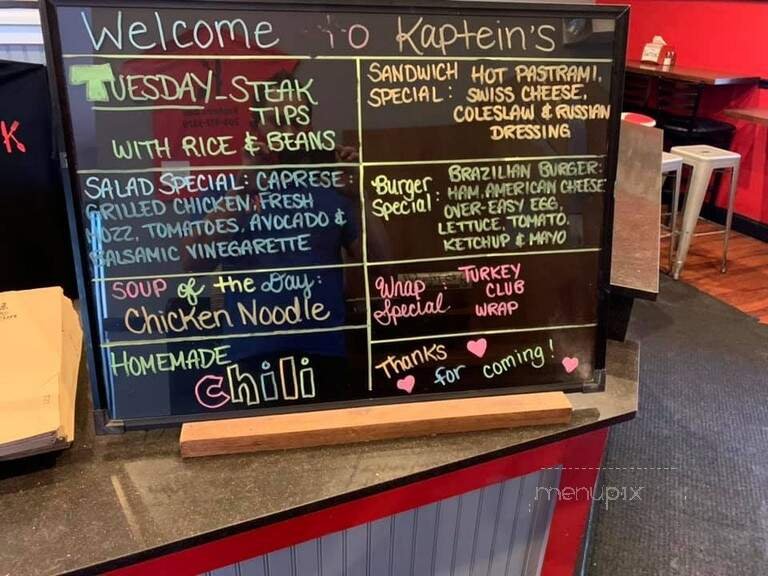 Welcome To Kaptein's
TUESDAY-STEAK
TIPS
WITH RICE & BEANS
SANDWICH SPECIAL: HOT PASTRAMI,
SWISS CHEESE,
COLESLAW & RUSSIAN
DRESSING
SALAD SPECIAL: CAPRESE:
GRILLED CHICKEN, FRESH
MOZZ, TOMATOES, AVOCADO &
BALSAMIC VINEGARETTE
Burger Special: BRAZILIAN BURGER:
HAM, AMERICAN CHEESE
OVER-EASY EGG,
LETTUCE, TOMATO,
KETCHUP & MAYO
SOUP of the Day:
Chicken Noodle
Wrap Special: TURKEY
CLUB
WRAP
HOMEMADE
chili
Thanks
for coming!
menupix